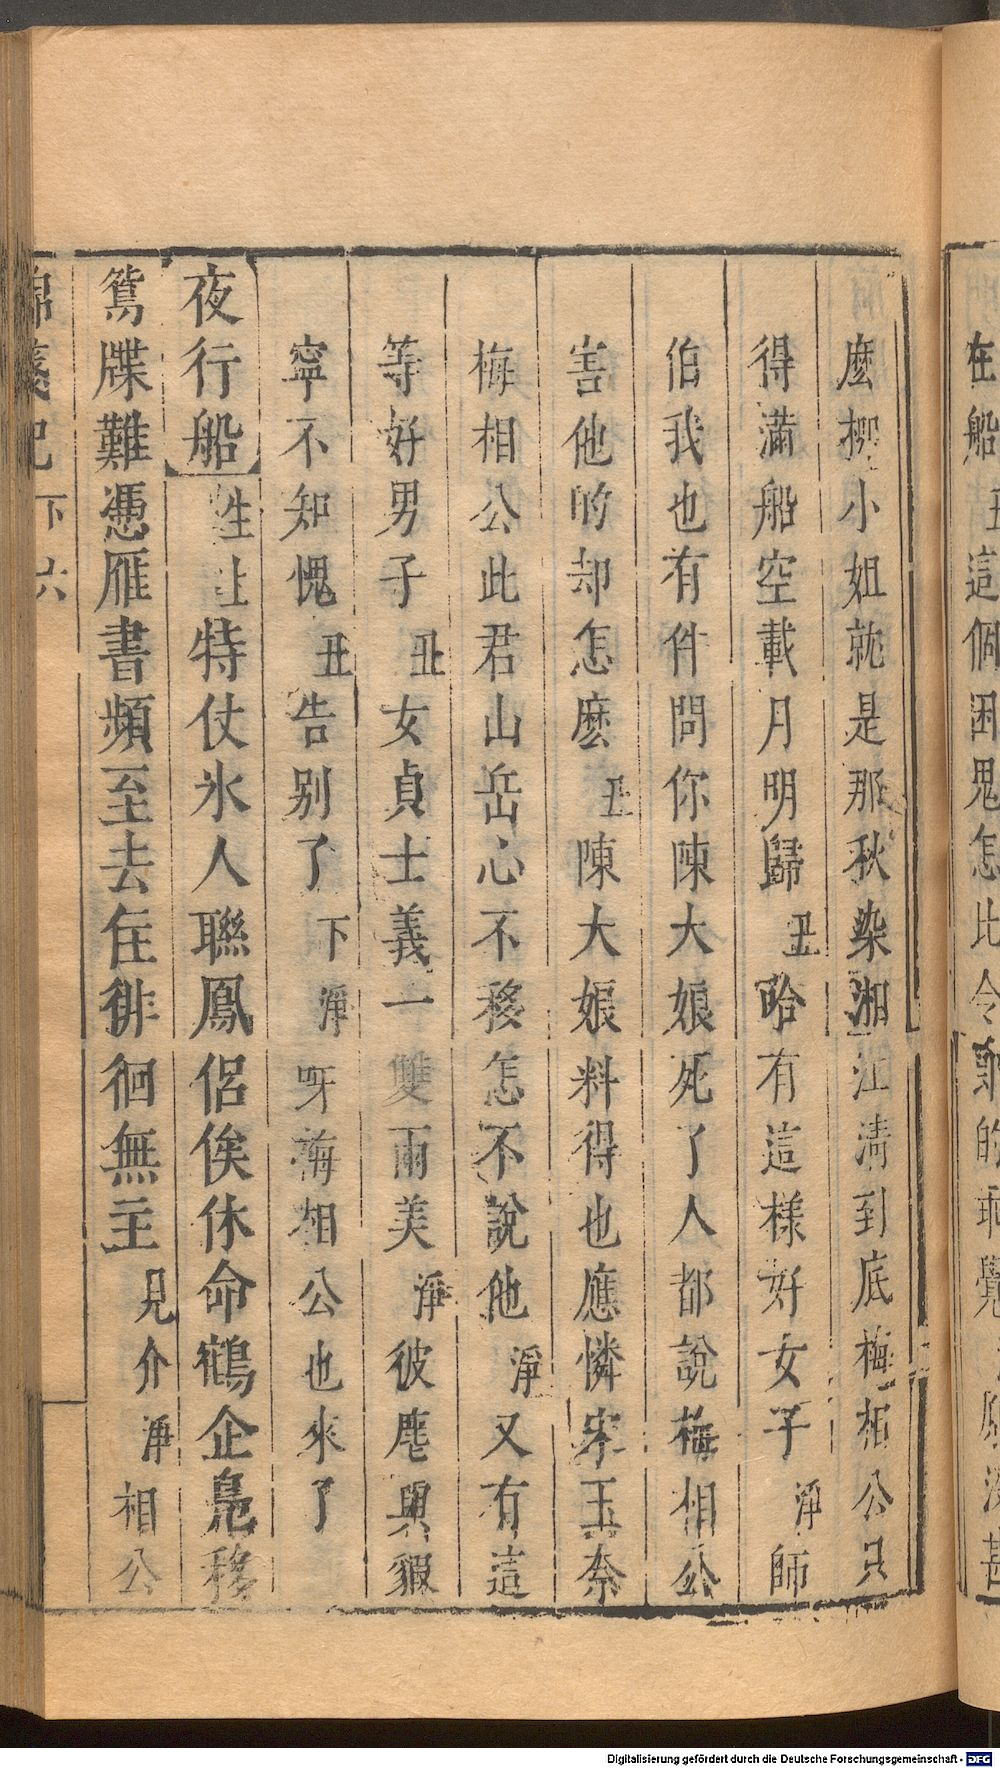 在船 丑 這個困鬼怎比令 的乖覺
麼柳小姐就是那秋染湘江清到底梅相公只
得滿船空載月明歸 丑 哈有這樣好女子 淨 師
伯我也有件問你陳大娘死了人都說梅相公
害他的却怎麼 丑 陳大娘料得也應憐宋玉奈
梅相公此君山岳心不移怎不說他 淨 又有這
等好男子 丑 女貞士義一雙兩美 淨 彼麀與豭
寧不知愧 丑 告别了 下 淨 呀梅相公也來了
夜行船 生上 特仗氷人聯鳳侶俟休命鶴企鳧移
鴛牒難憑雁書頻至去住徘徊無主 見介 淨 相公
錦箋記 下 六
Digitalisierung gefördert durch die Deutsche Forschungsgemeinschaft - DFG